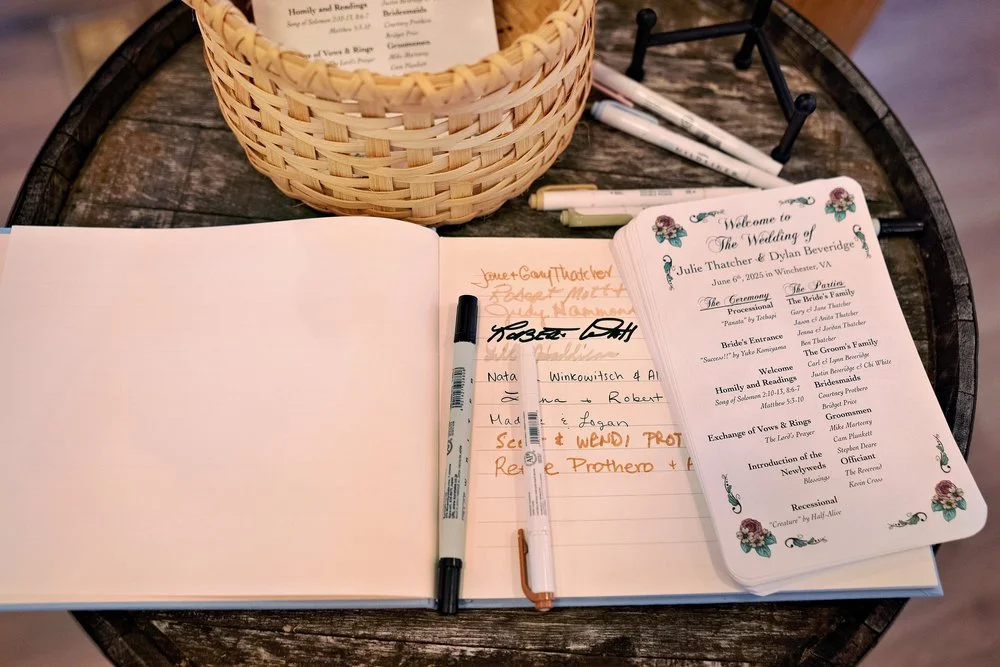 Homily and Readings
Song of Solomon 2:10-13, 8:6-7
Matthew 5:3-10
of Vows & Rings
The Lord's Prayer
Bridesmaids
Courtney Prothero
Bridget Price
Groomsmen
Mike Marteeny
Cam Plunkett
Jane + Gary Thatcher
Robert Mott
Judy Hammond
Robert
Nata Winkowitsch & Al
na + Robert
Mad & Logan
Sc & WENDI PROT
Re e Prothero +
Welcome to
The Wedding of
Julie Thatcher & Dylan Beveridge
June 6th, 2025 in Winchester, VA
The Ceremony
Processional
"Panata" by Techapi
Bride's Entrance
"Success!!" by Yuko Komiyama
Welcome
Homily and Readings
Song of Solomon 2:10-13, 8:6-7
Matthew 5:3-10
Exchange of Vows & Rings
The Lord's Prayer
Introduction of the
Newlyweds
Blessings
Recessional
"Creature" by Half-Alive
The Parties
The Bride's Family
Gary & Jane Thatcher
Jason & Anita Thatcher
Jenna & Jordan Thatcher
Ben Thatcher
The Groom's Family
Carl & Lynn Beveridge
Justin Beveridge & Chi White
Bridesmaids
Courtney Prothero
Bridget Price
Groomsmen
Mike Marteeny
Cam Plunkett
Stephen Deare
Officiant
The Reverend
Kevin Cross